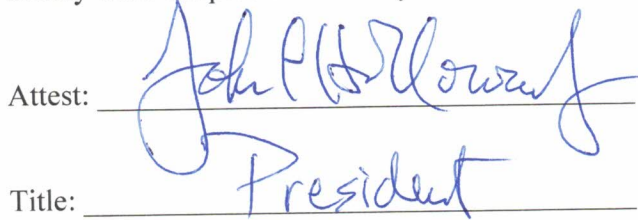 Attest: John P Holloway
Title: President